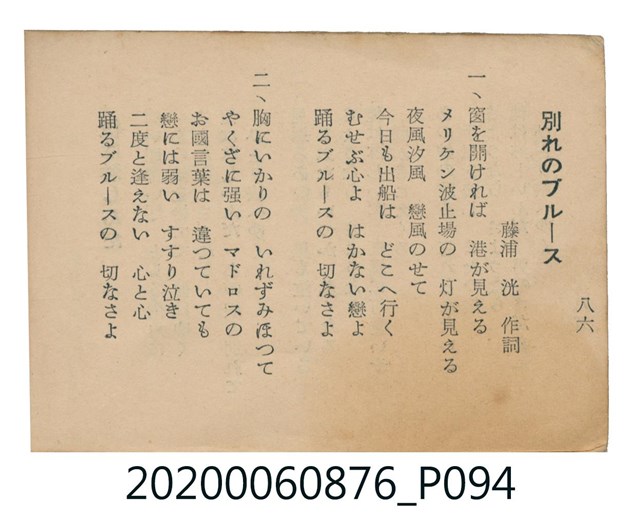 八六
別れのブルース
藤浦　洸　作詞
一、窗を開ければ　港が見える
メリケン波止場の　灯が見える
夜風汐風　戀風のせて
今日も出船は　どこへ行く
むせぶ心よ　はかない戀よ
踊るブルースの　切なさよ
二、胸にいかりの　いれずみほつて
やくざに强い　マドロスの
お國言葉は　違つていても
戀には弱い　すすり泣き
二度と逢えない　心と心
踊るブルースの　切なさよ
20200060876_P094